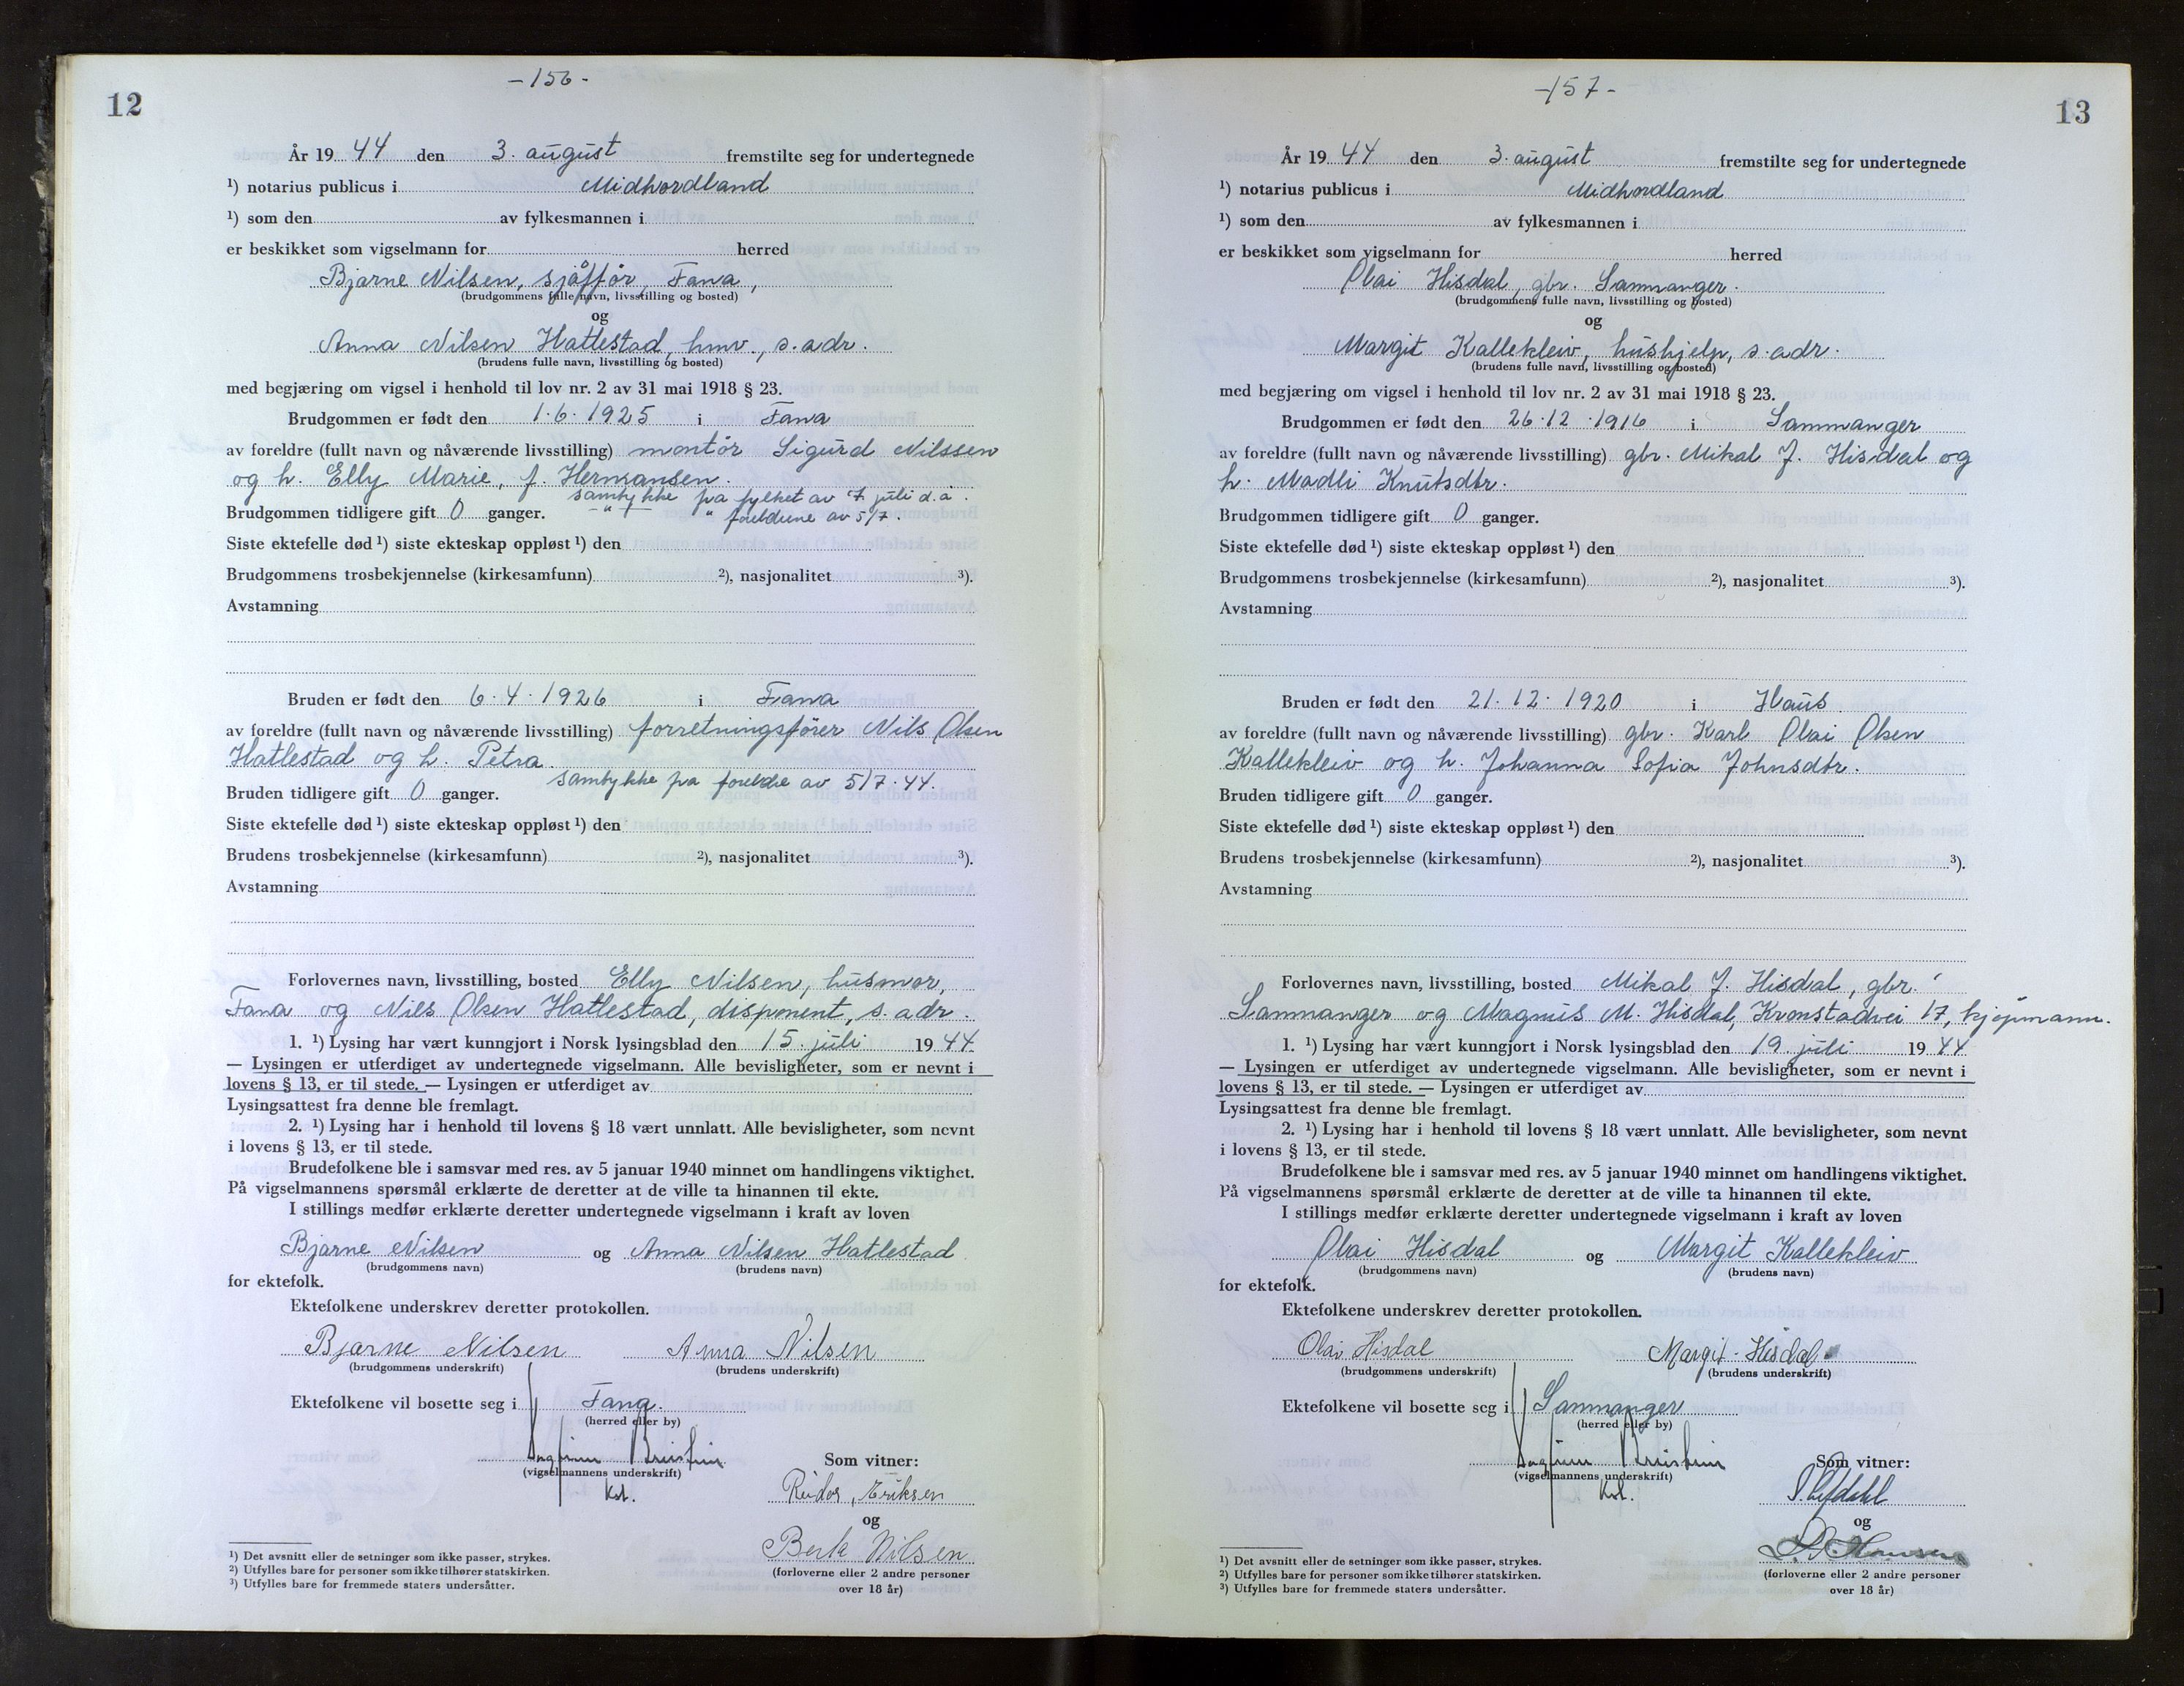 -156-
12
År 1944 den 3. august fremstilte seg for undertegnede
¹) notarius publicus i Midhordland
¹) som den av fylkesmannen i
er beskikket som vigselmann for herred
Bjarne Nilsen, sjåffør, Fana,
(brudgommens fulle navn, livsstilling og bosted)
og
Anna Nilsen Hatlestad, hmv., s. adr.
(brudens fulle navn, livsstilling og bosted)
med begjæring om vigsel i henhold til lov nr. 2 av 31 mai 1918 § 23.
Brudgommen er født den 1.6.1925 i Fana
av foreldre (fullt navn og nåværende livsstilling) montør Sigurd Nilssen
og h. Elly Marie, f. Hermansen.
samtykke fra fylket av 7 juli d.å.
Brudgommen tidligere gift 0 ganger. - " - " foreldrene av 5/7.
Siste ektefelle død ¹) siste ekteskap oppløst ¹) den
Brudgommens trosbekjennelse (kirkesamfunn) ²), nasjonalitet ³).
Avstamning
Bruden er født den 6.4.1926 i Fana
av foreldre (fullt navn og nåværende livsstilling) forretningsfører Nils Olsen
Hatlestad og h. Petra.
samtykke fra foreldre av 5/7.44.
Bruden tidligere gift 0 ganger.
Siste ektefelle død ¹) siste ekteskap oppløst ¹) den
Brudens trosbekjennelse (kirkesamfunn) ²), nasjonalitet ³).
Avstamning
Forlovernes navn, livsstilling, bosted Elly Nilsen, husmor,
Fana og Nils Olsen Hatlestad, disponent, s. adr.
1. ¹) Lysing har vært kunngjort i Norsk lysingsblad den 15. juli 1944
— Lysingen er utferdiget av undertegnede vigselmann. Alle bevisligheter, som er nevnt i
lovens § 13, er til stede. — Lysingen er utferdiget av
Lysingsattest fra denne ble fremlagt.
2. ¹) Lysing har i henhold til lovens § 18 vært unnlatt. Alle bevisligheter, som nevnt
i lovens § 13, er til stede.
Brudefolkene ble i samsvar med res. av 5 januar 1940 minnet om handlingens viktighet.
På vigselmannens spørsmål erklærte de deretter at de ville ta hinannen til ekte.
I stillings medfør erklærte deretter undertegnede vigselmann i kraft av loven
Bjarne Nilsen og Anna Nilsen Hatlestad
(brudgommens navn) (brudens navn)
for ektefolk.
Ektefolkene underskrev deretter protokollen.
Bjarne Nilsen Anna Nilsen
(brudgommens underskrift) (brudens underskrift)
Ektefolkene vil bosette seg i Fana.
(herred eller by)
Som vitner:
(vigselmannens underskrift)
Kst.
Reidar Eriksen
og
Berta Nilsen
(forloverne eller 2 andre personer
over 18 år)
¹) Det avsnitt eller de setninger som ikke passer, strykes.
²) Utfylles bare for personer som ikke tilhører statskirken.
³) Utfylles bare for fremmede staters undersåtter.
-157-
13
År 1944 den 3. august fremstilte seg for undertegnede
¹) notarius publicus i Midhordland
¹) som den av fylkesmannen i
er beskikket som vigselmann for herred
Olai Hisdal, gbr. Samnanger.
(brudgommens fulle navn, livsstilling og bosted)
og
Margit Kallekleiv, hushjelp, s. adr.
(brudens fulle navn, livsstilling og bosted)
med begjæring om vigsel i henhold til lov nr. 2 av 31 mai 1918 § 23.
Brudgommen er født den 26.12.1916 i Samnanger
av foreldre (fullt navn og nåværende livsstilling) gbr. Mikal J. Hisdal og
h. Madli Knutsdtr.
Brudgommen tidligere gift 0 ganger.
Siste ektefelle død ¹) siste ekteskap oppløst ¹) den
Brudgommens trosbekjennelse (kirkesamfunn) ²), nasjonalitet ³).
Avstamning
Bruden er født den 21.12.1920 i Haus
av foreldre (fullt navn og nåværende livsstilling) gbr. Karl Olai Olsen
Kallekleiv og h. Johanna Sofia Johnsdtr.
Bruden tidligere gift 0 ganger.
Siste ektefelle død ¹) siste ekteskap oppløst ¹) den
Brudens trosbekjennelse (kirkesamfunn) ²), nasjonalitet ³).
Avstamning
Forlovernes navn, livsstilling, bosted Mikal J. Hisdal, gbr.
Samnanger og Magnus M. Hisdal, Kronstadvei 17, kjøpmann.
1. ¹) Lysing har vært kunngjort i Norsk lysingsblad den 19. juli 1944
— Lysingen er utferdiget av undertegnede vigselmann. Alle bevisligheter, som er nevnt i
lovens § 13, er til stede. — Lysingen er utferdiget av
Lysingsattest fra denne ble fremlagt.
2. ¹) Lysing har i henhold til lovens § 18 vært unnlatt. Alle bevisligheter, som nevnt
i lovens § 13, er til stede.
Brudefolkene ble i samsvar med res. av 5 januar 1940 minnet om handlingens viktighet.
På vigselmannens spørsmål erklærte de deretter at de ville ta hinannen til ekte.
I stillings medfør erklærte deretter undertegnede vigselmann i kraft av loven
Olai Hisdal og Margit Kallekleiv
(brudgommens navn) (brudens navn)
for ektefolk.
Ektefolkene underskrev deretter protokollen.
Olai Hisdal Margit Hisdal
(brudgommens underskrift) (brudens underskrift)
Ektefolkene vil bosette seg i Samnanger
(herred eller by)
Som vitner:
(vigselmannens underskrift)
Kst.
og
Hansen
(forloverne eller 2 andre personer
over 18 år)
¹) Det avsnitt eller de setninger som ikke passer, strykes.
²) Utfylles bare for personer som ikke tilhører statskirken.
³) Utfylles bare for fremmede staters undersåtter.